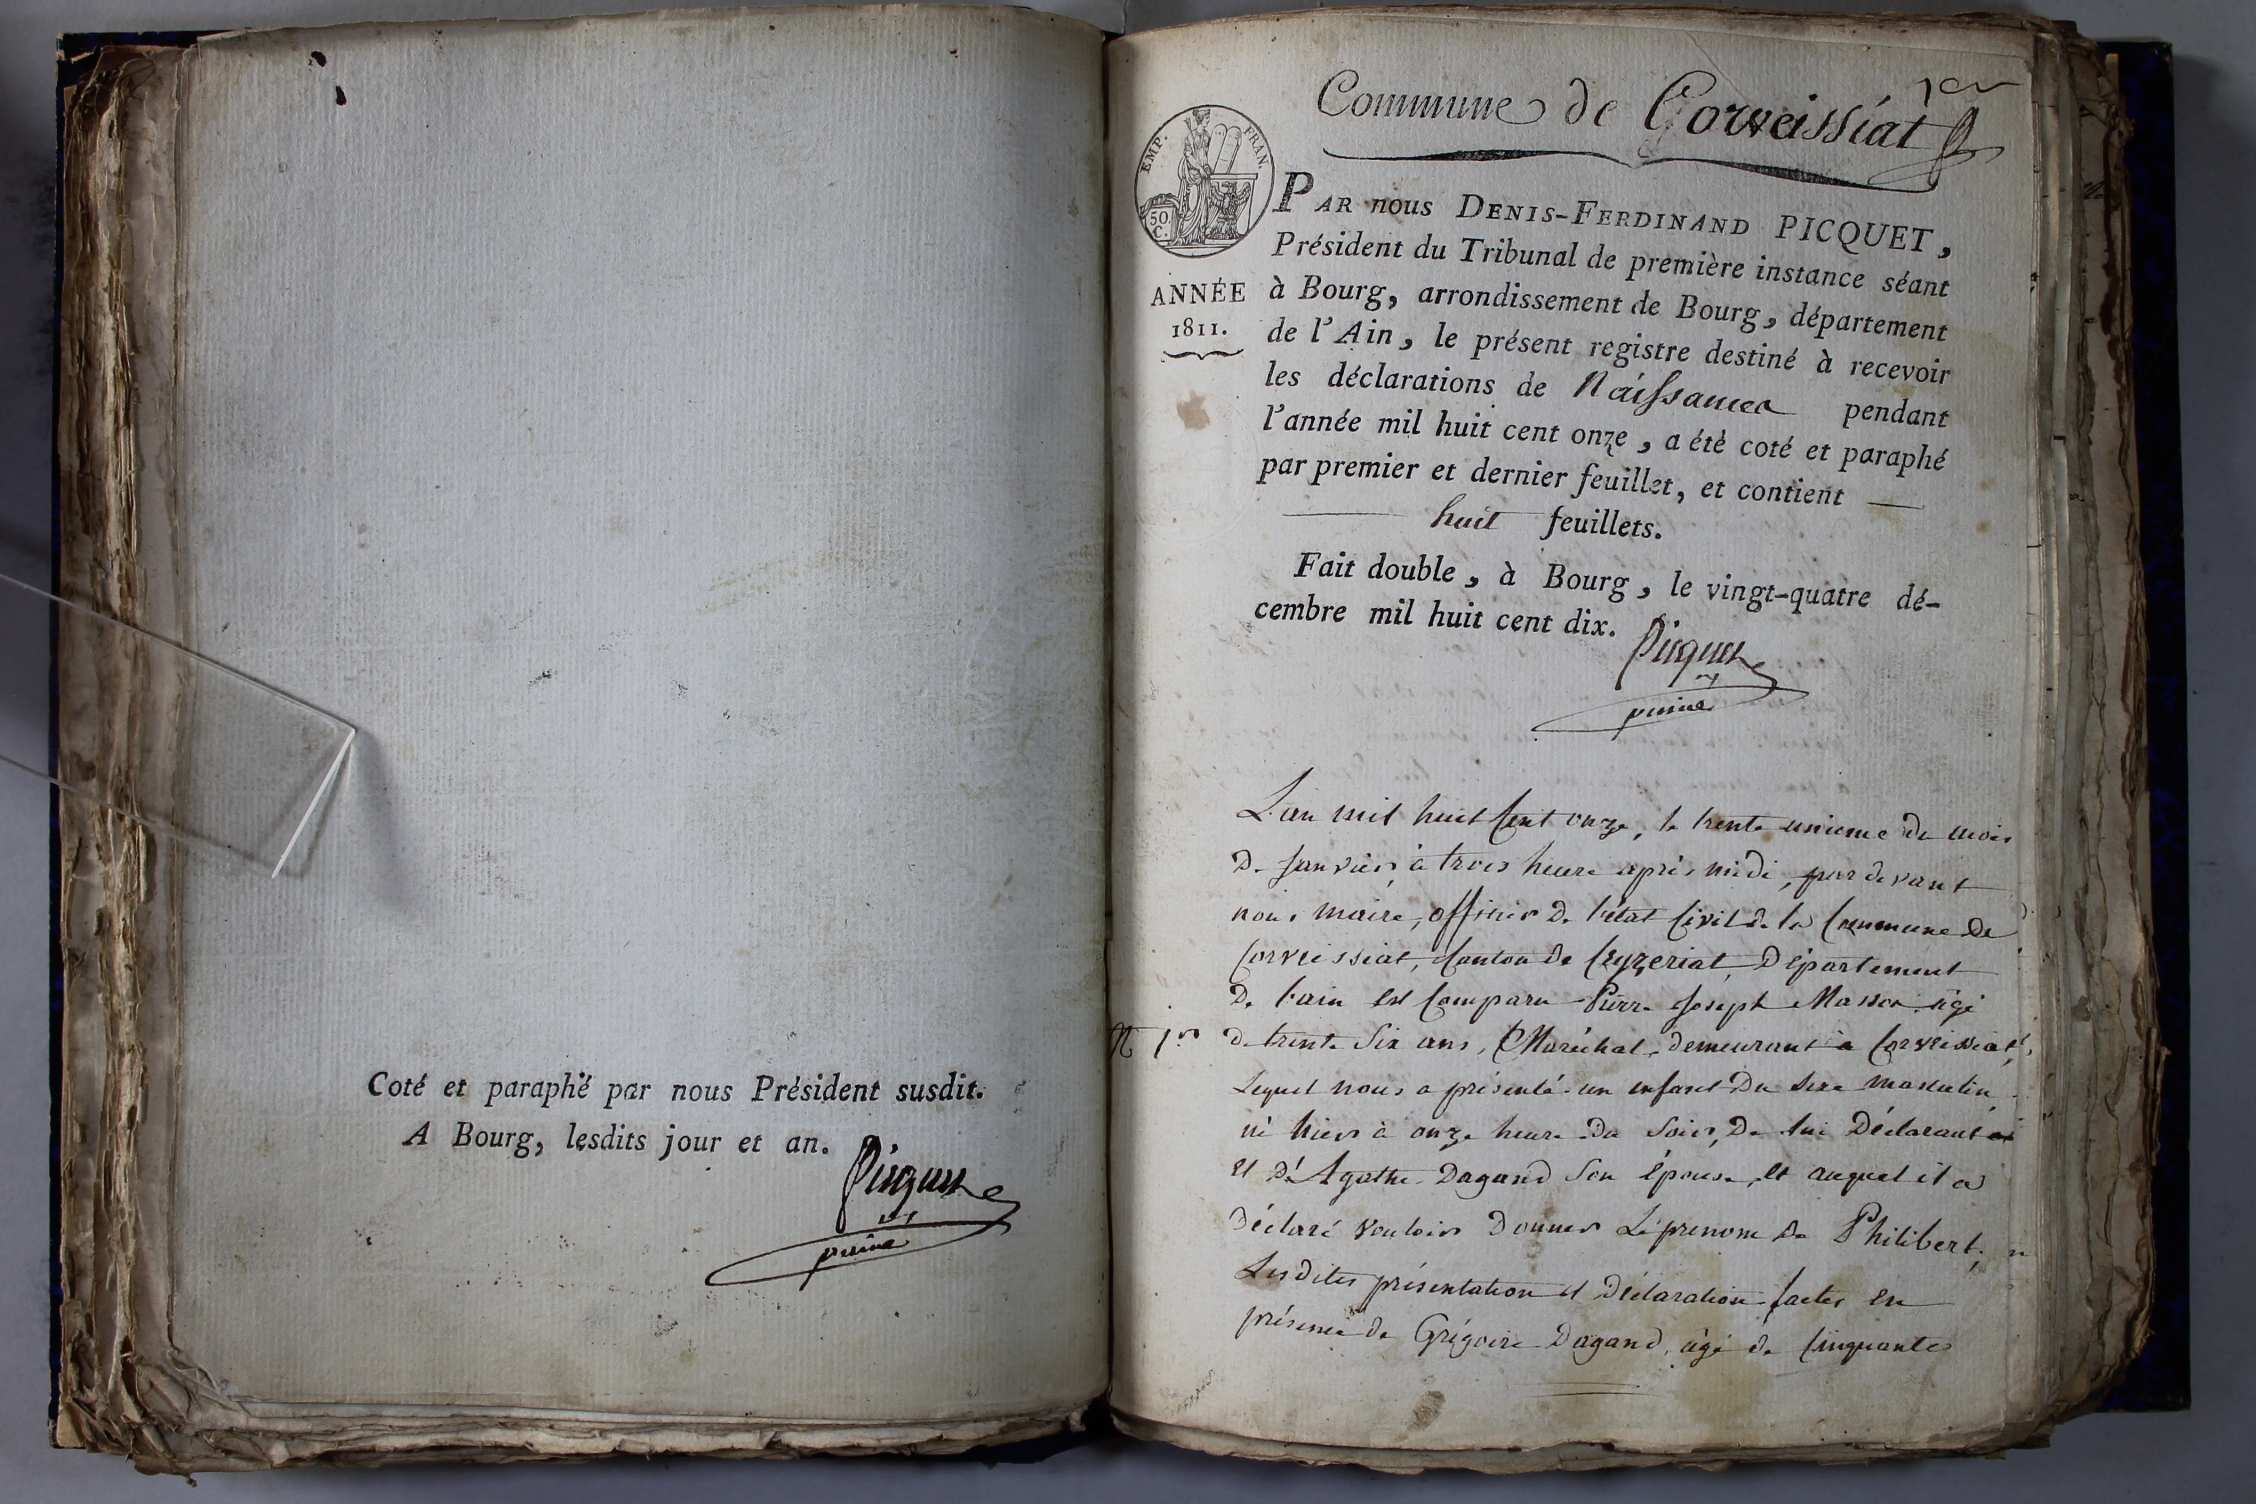 Coté et paraphé par nous Président susdit.
A Bourg, lesdits jour et an.
Picquet
Commune de Corveissiat
1er
EMP. FRAN
50
C.
ANNÉE
1811.
PAR nous DENIS-FERDINAND PICQUET,
Président du Tribunal de première instance séant
à Bourg, arrondissement de Bourg, département
de l'Ain, le présent registre destiné à recevoir
les déclarations de Naissances pendant
l'année mil huit cent onze, a été coté et paraphé
par premier et dernier feuillet, et contient
huit feuillets.
Fait double, à Bourg, le vingt-quatre dé-
cembre mil huit cent dix.
Picquet
L'an mil huit Cent onze, le trente unieme du mois
De Janvier à trois heure après midi, par devant
nous maire, officier De l'état Civil de la Commune De
Corveissiat, Canton De Ceyzeriat, Département
De l'ain est Comparu Pierre Joseph Masson âgé
N 1er
De trente Six ans, Maréchal, demeurant à Corveissiat,
Lequel nous a présenté un enfant Du Sexe masculin,
né hier à onze heure Du Soir, De lui Déclarant
et D'Agathe Dagand Son épouse, et auquel il a
Déclaré vouloir Donner Le prenom De Philibert,
Lesdites présentation et Déclaration faites en
présence de Grégoire Dagand, âgé de Cinquante